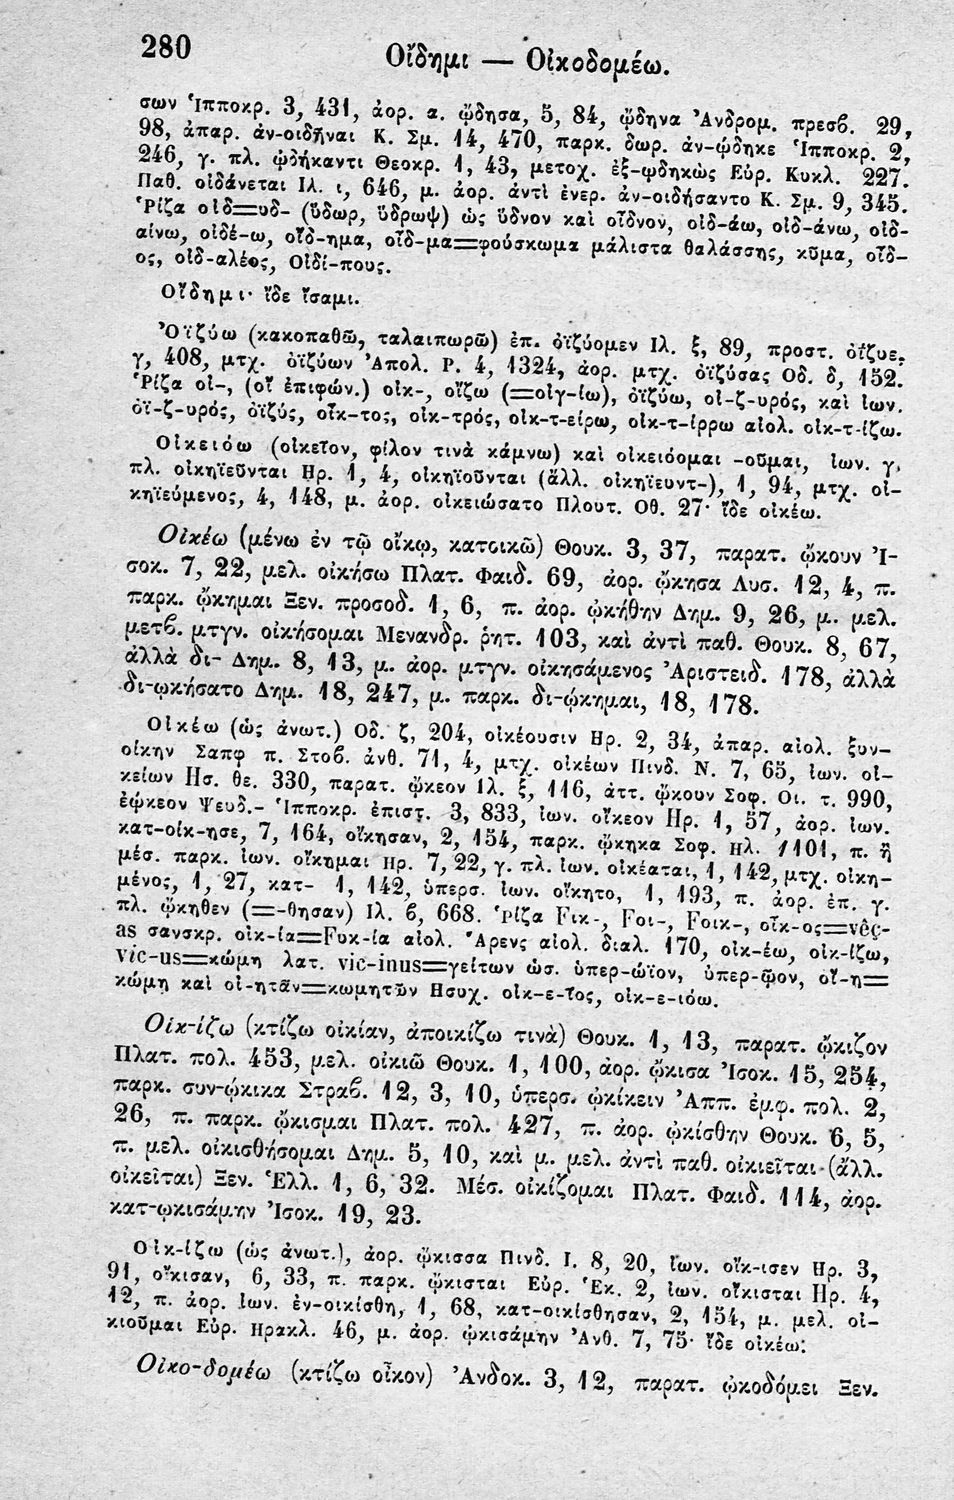 280
Οἴδημι — Οἰκοδομέω.
σων Ἱπποκρ. 3, 431, ἀορ. α. ᾤδησα, 5, 84, ᾤδηνα Ἀνδρομ. πρεσβ. 29,
98, ἀπαρ. ἀν-οιδῆναι Κ. Σμ. 14, 470, παρκ. δωρ. ἀν-ῴδηκε Ἱπποκρ. 2,
246, γ. πλ. ᾠδήκαντι Θεοκρ. 1, 43, μετοχ. ἐξ-ῳδηκὼς Εὐρ. Κυκλ. 227.
Παθ. οἰδάνεται Ιλ. ι, 646, μ. ἀορ. ἀντὶ ἐνερ. ἀν-οιδήσαντο Κ. Σμ. 9, 345.
Ῥίζα οιδ=υδ- (ὕδωρ, ὕδρωψ) ὡς ὕδνον καὶ οἶδνον, οἰδ-άω, οἰδ-άνω, οἰδ-
αίνω, οἰδέ-ω, οἶδ-ημα, οἶδ-μα=φούσκωμα μάλιστα θαλάσσης, κῦμα, οἶδ-
ος, οἰδ-αλέος, Οἰδί-πους.
Οἴδημι· ἴδε ἴσαμι.
Ὀϊζύω (κακοπαθῶ, ταλαιπωρῶ) ἐπ. ὀϊζύομεν Ιλ. ξ, 89, προστ. ὀΐζυε,
γ, 408, μτχ. ὀϊζύων Ἀπολ. Ρ. 4, 1324, ἀορ. μτχ. ὀϊζύσας Οδ. δ, 152.
Ῥίζα οἰ-, (οἴ ἐπιφών.) οἰκ-, οἴζω (=οἰγ-ίω), ὀϊζύω, οἰ-ζ-υρός, καὶ ἰων.
ὀϊ-ζ-υρός, ὀϊζύς, οἶκ-τος, οἰκ-τρός, οἰκ-τ-είρω, οἰκ-τ-ίρρω αἰολ. οἰκ-τ-ίζω.
Οἰκειόω (οἰκεῖον, φίλον τινὰ κάμνω) καὶ οἰκειόομαι -οῦμαι, ἰων. γ.
πλ. οἰκηϊεῦνται Ηρ. 1, 4, οἰκηϊοῦνται (ἄλλ. οἰκηϊευντ-), 1, 94, μτχ. οἰ-
κηϊεύμενος, 4, 148, μ. ἀορ. οἰκειώσατο Πλουτ. Οθ. 27· ἴδε οἰκέω.
Οἰκέω (μένω ἐν τῷ οἴκῳ, κατοικῶ) Θουκ. 3, 37, παρατ. ᾤκουν Ἰ-
σοκ. 7, 22, μελ. οἰκήσω Πλατ. Φαιδ. 69, ἀορ. ᾤκησα Λυσ. 12, 4, π.
παρκ. ᾤκημαι Ξεν. προσοδ. 1, 6, π. ἀορ. ᾠκήθην Δημ. 9, 26, μ. μελ.
μετβ. μτγν. οἰκήσομαι Μενανδρ. ῥητ. 103, καὶ ἀντὶ παθ. Θουκ. 8, 67,
ἀλλὰ δι- Δημ. 8, 13, μ. ἀορ. μτγν. οἰκησάμενος Ἀριστειδ. 178, ἀλλὰ
δι-ῳκήσατο Δημ. 18, 247, μ. παρκ. δι-ῴκημαι, 18, 178.
Οἰκέω (ὡς ἀνωτ.) Οδ. ζ, 204, οἰκέουσιν Ηρ. 2, 34, ἀπαρ. αἰολ. ξυν-
οίκην Σαπφ π. Στοβ. ἀνθ. 71, 4, μτχ. οἰκέων Πινδ. Ν. 7, 65, ἰων. οἰ-
κείων Ησ. θε. 330, παρατ. ᾤκεον Ιλ. ξ, 116, ἀττ. ᾤκουν Σοφ. Οι. τ. 990,
ἐῴκεον Ψευδ.- Ἱπποκρ. ἐπιστ. 3, 833, ἰων. οἴκεον Ηρ. 1, 57, ἀορ. ἰων.
κατ-οίκ-ησε, 7, 164, οἴκησαν, 2, 154, παρκ. ᾤκηκα Σοφ. Ηλ. 1101, π. ἢ
μέσ. παρκ. ἰων. οἴκημαι Ηρ. 7, 22, γ. πλ. ἰων. οἰκέαται, 1, 142, μτχ. οἰκη-
μένος, 1, 27, κατ- 1, 142, ὑπερσ. ἰων. οἴκητο, 1, 193, π. ἀορ. ἐπ. γ.
πλ. ᾤκηθεν (=-θησαν) Ιλ. β, 668. Ῥίζα Fικ-, Fοι-, Fοικ-, οἶκ-ος=vêç-
as σανσκρ. οἰκ-ία=Fυκ-ία αἰολ. Ἀρενς αἰολ. διαλ. 170, οἰκ-έω, οἰκ-ίζω,
vic-us=κώμη λατ. vic-inus=γείτων ὡσ. ὑπερ-ώϊον, ὑπερ-ῷον, οἴ-η=
κώμη καὶ οἰ-ητᾶν=κωμητῶν Ησυχ. οἰκ-ε-ῖος, οἰκ-ε-ιόω.
Οἰκ-ίζω (κτίζω οἰκίαν, ἀποικίζω τινὰ) Θουκ. 1, 13, παρατ. ᾤκιζον
Πλατ. πολ. 453, μελ. οἰκιῶ Θουκ. 1, 100, ἀορ. ᾤκισα Ἰσοκ. 15, 254,
παρκ. συν-ῴκικα Στραβ. 12, 3, 10, ὑπερσ. ᾠκίκειν Ἀππ. ἐμφ. πολ. 2,
26, π. παρκ. ᾤκισμαι Πλατ. πολ. 427, π. ἀορ. ᾠκίσθην Θουκ. 6, 5,
π. μελ. οἰκισθήσομαι Δημ. 5, 10, καὶ μ. μελ. ἀντὶ παθ. οἰκιεῖται (ἄλλ.
οἰκεῖται) Ξεν. Ἑλλ. 1, 6, 32. Μέσ. οἰκίζομαι Πλατ. Φαιδ. 114, ἀορ.
κατ-ῳκισάμην Ἰσοκ. 19, 23.
Οἰκ-ίζω (ὡς ἀνωτ.), ἀορ. ᾤκισσα Πινδ. Ι. 8, 20, ἰων. οἴκ-ισεν Ηρ. 3,
91, οἴκισαν, 6, 33, π. παρκ. ᾤκισται Εὐρ. Ἑκ. 2, ἰων. οἴκισται Ηρ. 4,
12, π. ἀορ. ἰων. ἐν-οικίσθη, 1, 68, κατ-οικίσθησαν, 2, 154, μ. μελ. οἰ-
κιοῦμαι Εὐρ. Ηρακλ. 46, μ. ἀορ. ᾠκισάμην Ἀνθ. 7, 75· ἴδε οἰκέω:
Οἰκο-δομέω (κτίζω οἶκον) Ἀνδοκ. 3, 12, παρατ. ᾠκοδόμει Ξεν.